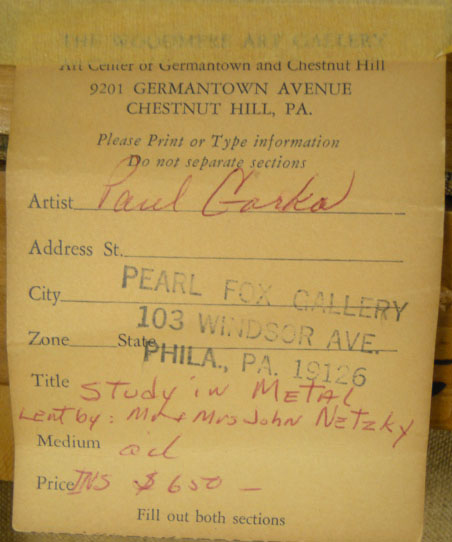 THE WOODMERE ART GALLERY
Art Center of Germantown and Chestnut Hill
9201 GERMANTOWN AVENUE
CHESTNUT HILL, PA.
Please Print or Type information
Do not separate sections
Artist Paul Gorka
Address St.
City PEARL FOX GALLERY
103 WINDSOR AVE.
Zone State PHILA., PA. 19126
Title Study in Metal
Lent by: Mr & Mrs John Netzky
Medium oil
Price INS $650 —
Fill out both sections